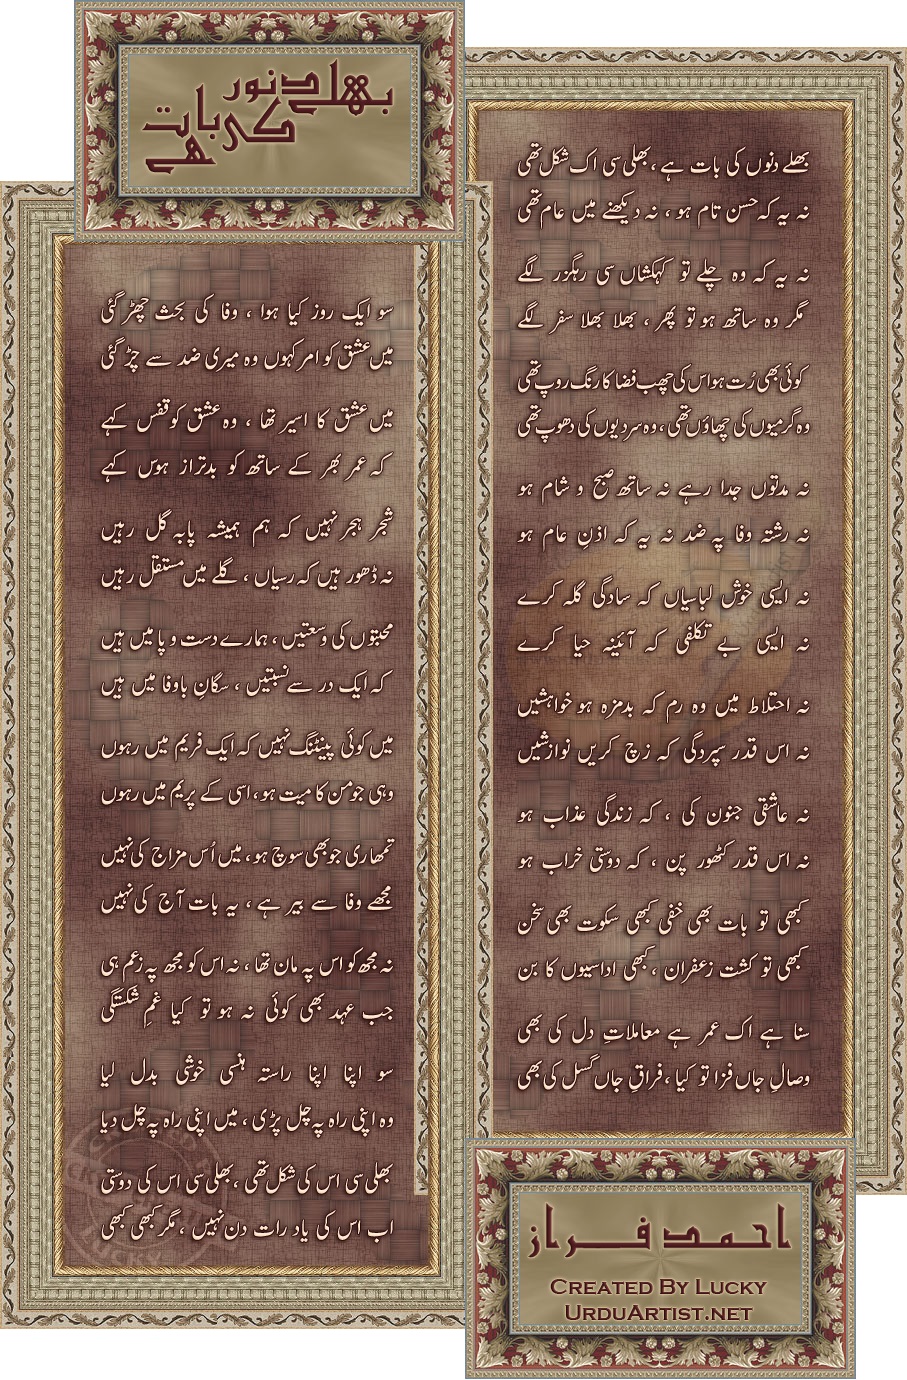 بھلے دنوں
کی بات
ہے
بھلے دنوں کی بات ہے ، بھلی سی اک شکل تھی
نہ یہ کہ حسن تام ہو ، نہ دیکھنے میں عام تھی
نہ یہ کہ وہ چلے تو کہکشاں سی رہگزر لگے
مگر وہ ساتھ ہو تو پھر ، بھلا بھلا سفر لگے
کوئی بھی رُت ہو اس کی چھب فضا کا رنگ روپ تھی
وہ گرمیوں کی چھاؤں تھی ، وہ سردیوں کی دھوپ تھی
نہ مدتوں جدا رہے نہ ساتھ صبح و شام ہو
نہ رشتہ وفا پہ ضد نہ یہ کہ اذنِ عام ہو
نہ ایسی خوش لباسیاں کہ سادگی گلہ کرے
نہ ایسی بے تکلفی کہ آئینہ حیا کرے
نہ اختلاط میں وہ رم کہ بدمزہ ہو خواہشیں
نہ اس قدر سپردگی کہ زچ کریں نوازشیں
نہ عاشقی جنون کی ، کہ زندگی عذاب ہو
نہ اس قدر کٹھور پن ، کہ دوستی خراب ہو
کبھی تو بات بھی خفی کبھی سکوت بھی سخن
کبھی تو کشت زعفران ، کبھی اداسیوں کا بن
سنا ہے اک عمر ہے معاملاتِ دل کی بھی
وصالِ جاں فزا تو کیا ، فراقِ جاں گسل کی بھی
سو ایک روز کیا ہوا ، وفا کی بحث چھڑ گئی
میں عشق کو امر کہوں وہ میری ضد سے چڑ گئی
میں عشق کا اسیر تھا ، وہ عشق کو قفس کہے
کہ عمر بھر کے ساتھ کو بدتراز ہوس کہے
شجر ہجر نہیں کہ ہم ہمیشہ پابہ گل رہیں
نہ ڈھور ہیں کہ رسیاں ، گلے میں مستقل رہیں
محبتوں کی وسعتیں ، ہمارے دست و پا میں ہیں
کہ ایک در سے نسبتیں ، سگانِ باوفا میں ہیں
میں کوئی پینٹنگ نہیں کہ ایک فریم میں رہوں
وہی جو من کا میت ہو ، اسی کے پریم میں رہوں
تمھاری جو بھی سوچ ہو ، میں اُس مزاج کی نہیں
مجھے وفا سے بیر ہے ، یہ بات آج کی نہیں
نہ مجھ کو اس پہ مان تھا ، نہ اس کو مجھ پہ زعم ہی
جب عہد بھی کوئی نہ ہو تو کیا غمِ شکستگی
سو اپنا اپنا راستہ ہنسی خوشی بدل لیا
وہ اپنی راہ پہ چل پڑی ، میں اپنی راہ پہ چل دیا
بھلی سی اس کی شکل تھی ، بھلی سی اس کی دوستی
اب اس کی یاد رات دن نہیں ، مگر کبھی کبھی
احمد فراز
CREATED BY LUCKY
URDUARTIST.NET